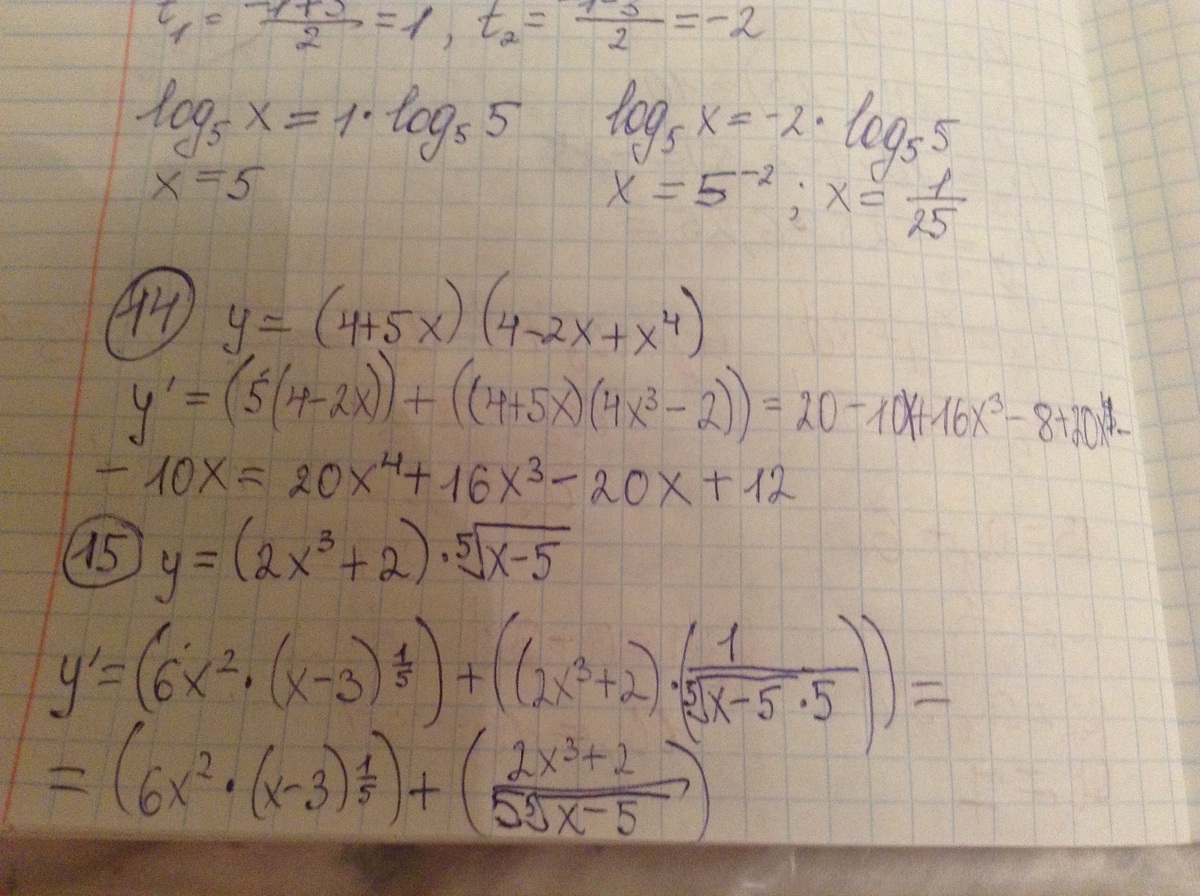 t₁ = (-1+3)/2 = 1, t₂ = (-1-3)/2 = -2
log₅ x = 1 · log₅ 5 log₅ x = -2 · log₅ 5
x = 5 x = 5⁻² ; x = 1/25
14 y = (4+5x)(4-2x+x⁴)
y' = (5(4-2x)) + ((4+5x)(4x³-2)) = 20-10x+16x³-8+20x⁴-
-10x = 20x⁴+16x³-20x+12
15 y = (2x³+2) · ⁵√(x-5)
y' = (6x² · (x-3)^(1/5)) + ((2x³+2) · (1/(⁵√(x-5) · 5))) =
= (6x² · (x-3)^(1/5)) + ((2x³+2)/(5 ⁵√(x-5)))